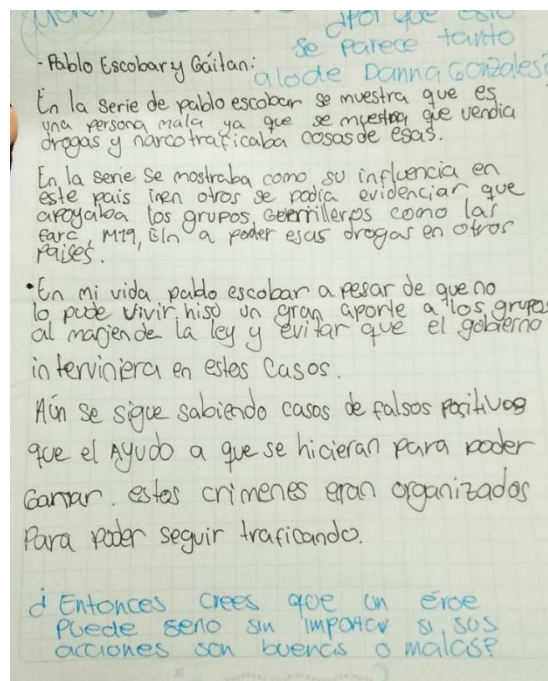 ¿Por que esto
se parece tanto
a lo de Danna Gonzales?
- Pablo Escobar y Gaitan:
En la serie de pablo escobar se muestra que es
una persona mala ya que se muestra que vendia
drogas y narcotraficaba cosas de esas.
En la serie se mostraba como su influencia en
este pais i en otros se podia evidenciar que
apoyaba los grupos, Gerrilleros como las
Farc, M19, Eln a poder esas drogas en otros
paises.
• En mi vida pablo escobar a pesar de que no
lo pude vivir hiso un gran aporte a los grupos
al marjen de la ley y evitar que el gobierno
interviniera en estos casos.
Aún se sigue sabiendo casos de falsos positivos
que el Ayudo a que se hicieran para poder
Ganar. estos crimenes eran organizados
Para poder seguir traficando.
¿Entonces crees que un eroe
puede serlo sin importar si sus
acciones son buenas o malas?